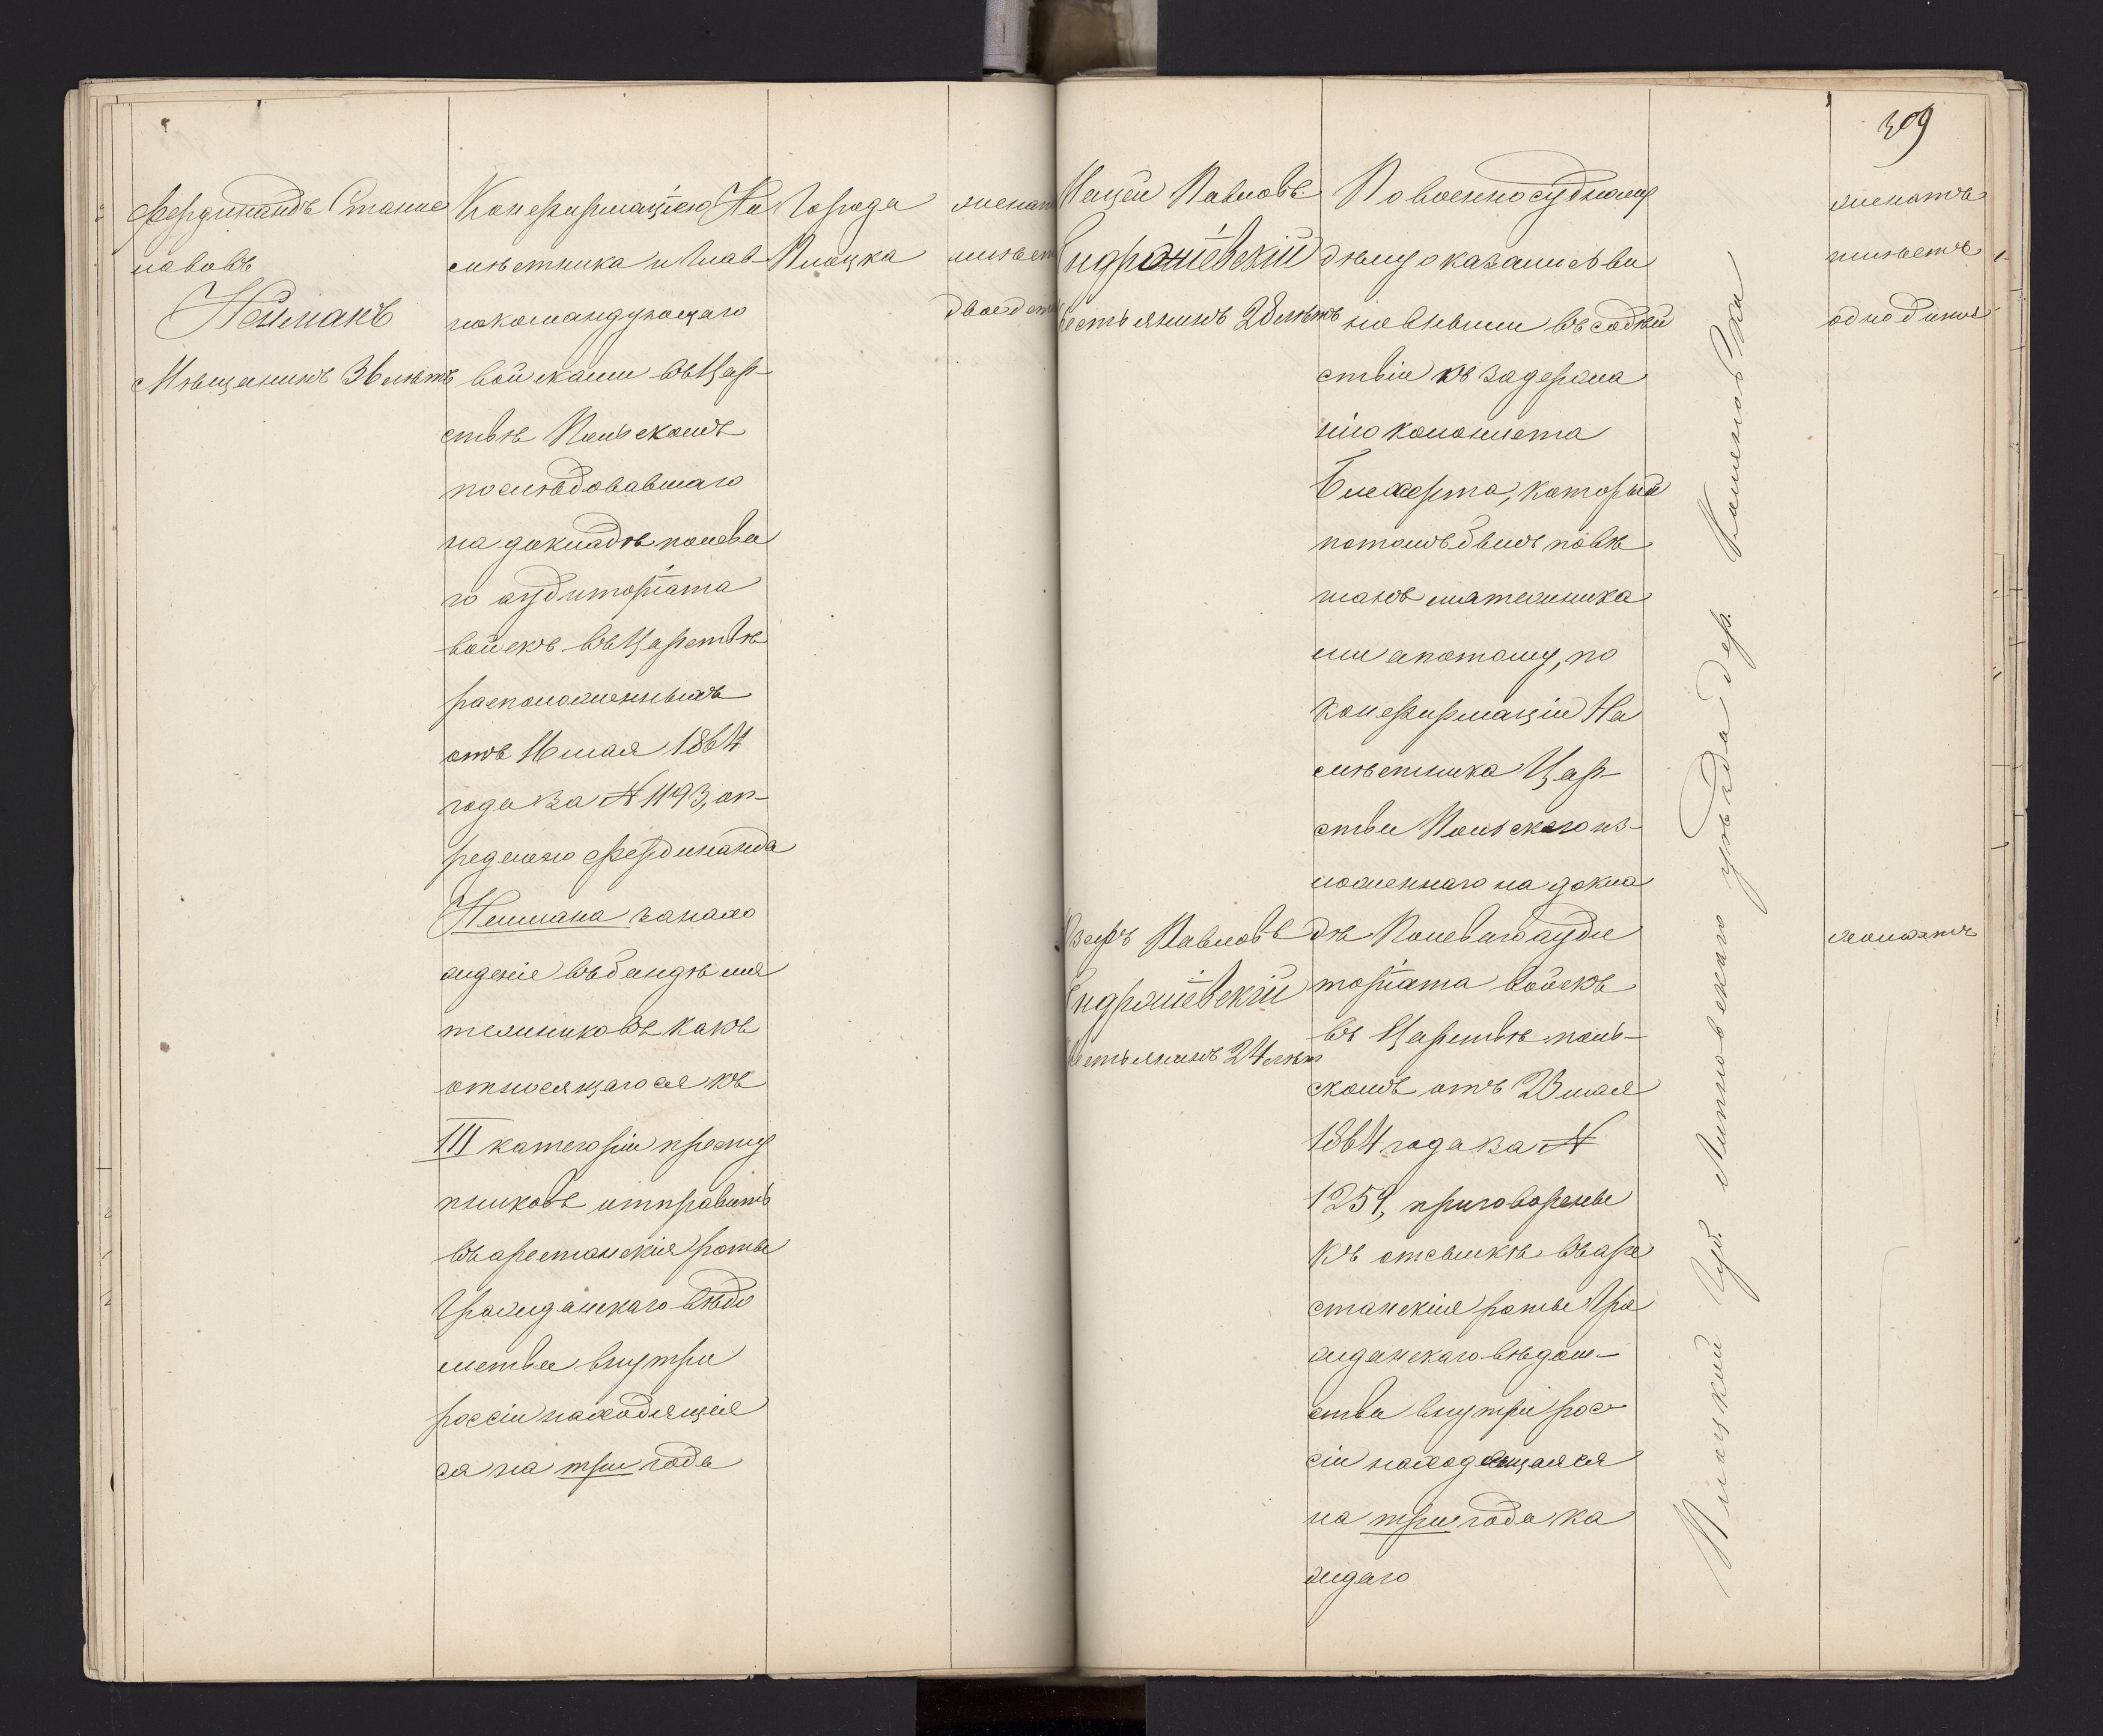 Фердинандъ Станис
лавовъ
Нейманъ
Мѣщанинъ 36 лѣтъ
Конфирмаціею На
мѣстника и Глав
нокомандующаго
войсками въ Цар-
ствѣ Польскомъ
послѣдовавшаго
на докладѣ полева
го аудиторіата
войскъ въ Царствѣ
расположенныхъ
отъ 16 мая 1864
года за № 1193, оп-
редѣлено Фердинанда
Неймана за нахо
жденіе въ бандѣ мя
тежниковъ какъ
относящагося къ
III категоріи престу
пниковъ отправить
въ арестанскія роты
Гражданскаго вѣдо
мства внутри
россіи находящія
ся на три года
Города
Плоцка
женатъ
имѣет
двое дет
309
Мацей Павловъ
Ендржіевскій
крестьянинъ 28 лѣтъ
Юзефъ Павловъ
Ендржіевскій
крестьянинъ 24 лѣт
По военносудному
дѣлу оказались ви
новными въ содѣй
ствіи къ задержа
нію колониста
Блехерта, который
потомъ былъ повѣ
шанъ мятежника
ми а потому, по
конфирмаціи На
мѣстника Цар-
ства Польскаго из-
ложеннаго на докла
дѣ Полеваго ауди
торіата войскъ
въ Царствѣ поль-
скомъ отъ 23 мая
1864 года за №
1259, приговорены
къ отсылкѣ въ аре
станскія роты Гра
жданскаго вѣдом-
ства внутри рос
сіи находящіяся
на три года ка
ждаго
Плоцкой Губ. Липновскаго уѣзда дер.
женатъ
имѣетъ
одно дитя
холостъ